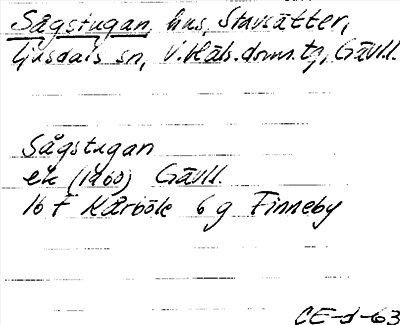 Sågstugan, hus, Stavsätter,
Ljusdals sn, V. Häls. doms. tg, Gävll.
Sågstugan
ek (1960) Gävll.
16 F Kårböle 6 g Finneby
CE-d-63